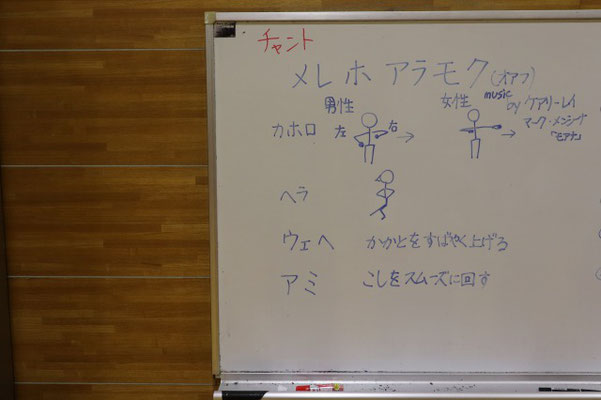 チャント
メレ ホ アラモク (オアフ)
男性
女性
music by ケアリーレイ
マーク・メンシナ
「モアナ」
カホロ 左 右
ヘラ
ウェヘ かかとをすばやく上げる
アミ こしをスムーズに回す